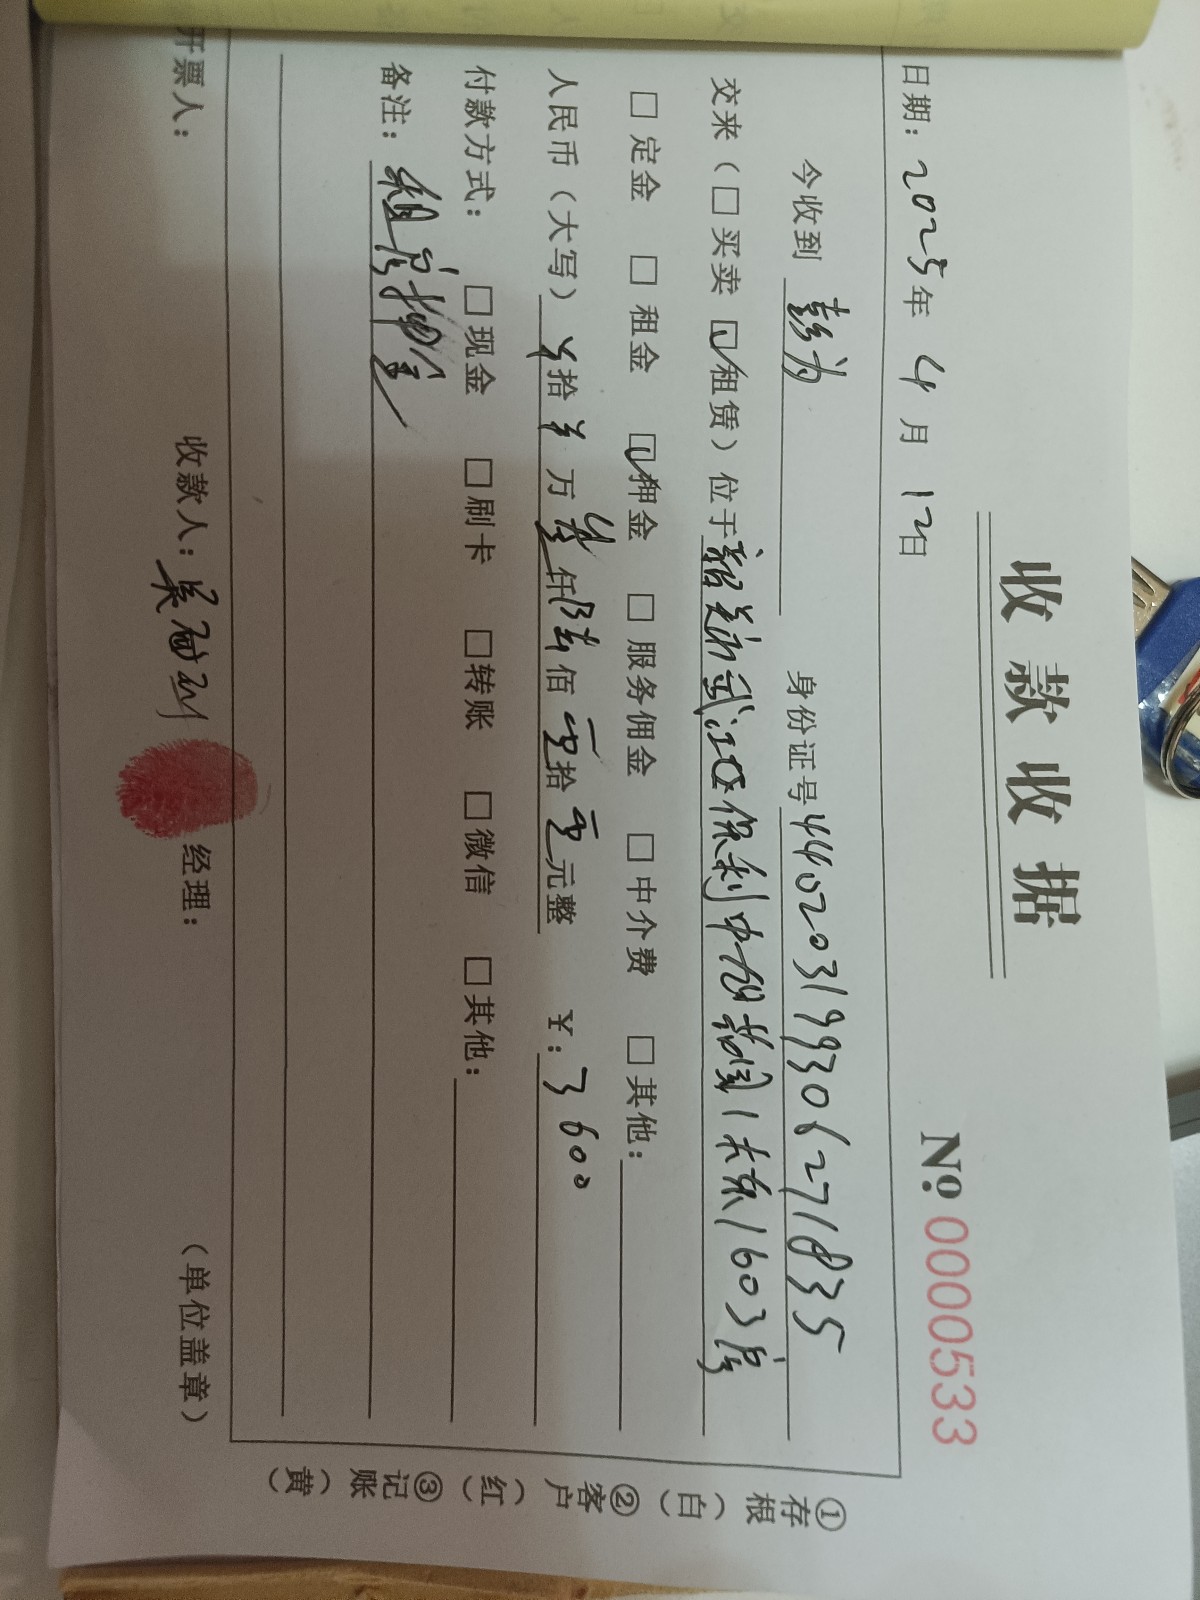 收款收据
№ 0000533
日期：2025年 4月 12日
今收到 彭为 身份证号440203199306271835
交来（□买卖 ☑租赁）位于韶关市武江区保利中宙 1栋 1603房
□定金 □租金 ☑押金 □服务佣金 □中介费 □其他：
人民币（大写）¥拾¥万叁仟陆佰零拾零元整 ¥：3600
付款方式：□现金 □刷卡 □转账 □微信 □其他：
备注：租房押金
开票人： 收款人：吴 经理： （单位盖章）
①存根（白）②客户（红）③记账（黄）